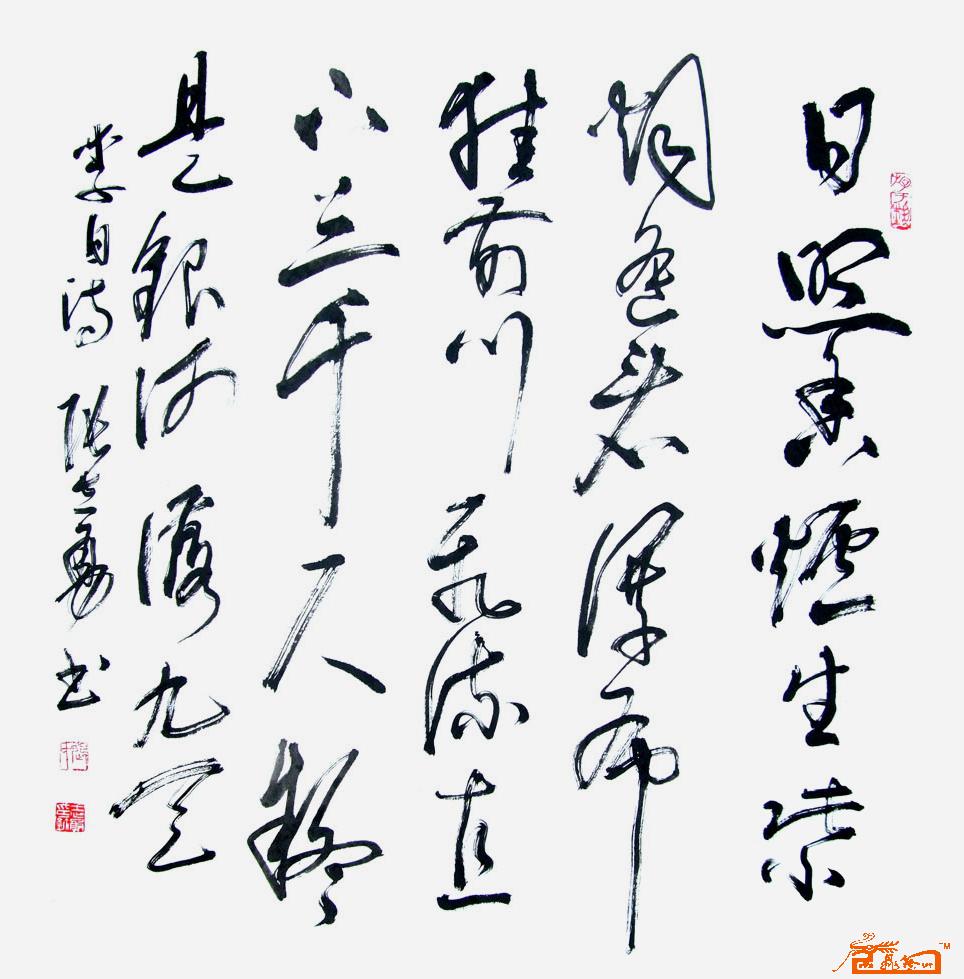 日照香爐生紫
烟遥看瀑布
挂前川飛流直
下三千尺疑
是銀河落九天
李白詩 张 书